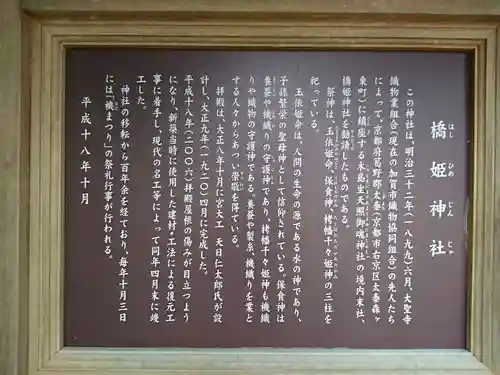 橋姫神社
はし ひめ じん じゃ
この神社は、明治三十二年(一八九九)六月、大聖寺
織物業組合(現在の加賀市織物協同組合)の先人たち
によって、京都府葛野郡太秦(京都市右京区太秦森ヶ
東町)に鎮座する木島坐天照御魂神社の境内末社、
橋姫神社を勧請したものである。
祭神は、玉依姫命、保食神、栲幡千々姫神の三柱を
祀っている。
玉依姫命は、人間の生命の源である水の神であり、
子孫繁栄の聖母神として信仰されている。保食神は
養蚕や機織りの守護神であり、栲幡千々姫神も機織
りや織物の守護神である。養蚕や製糸、機織りを業と
する人々からあつい崇敬を得ている。
拝殿は、大正八年十月に宮大工 天日仁太郎氏が設
計し、大正九年(一九二〇)四月に完成した。
平成十八年(二〇〇六)拝殿屋根の傷みが目立つよう
になり、新築当時に使用した建材・工法による復元工
事に着手し、現代の名工等によって同年四月末に竣
工した。
神社の移転から百年余を経ており、毎年十月三日
には「機まつり」の祭礼行事が行われる。
平成十八年十月